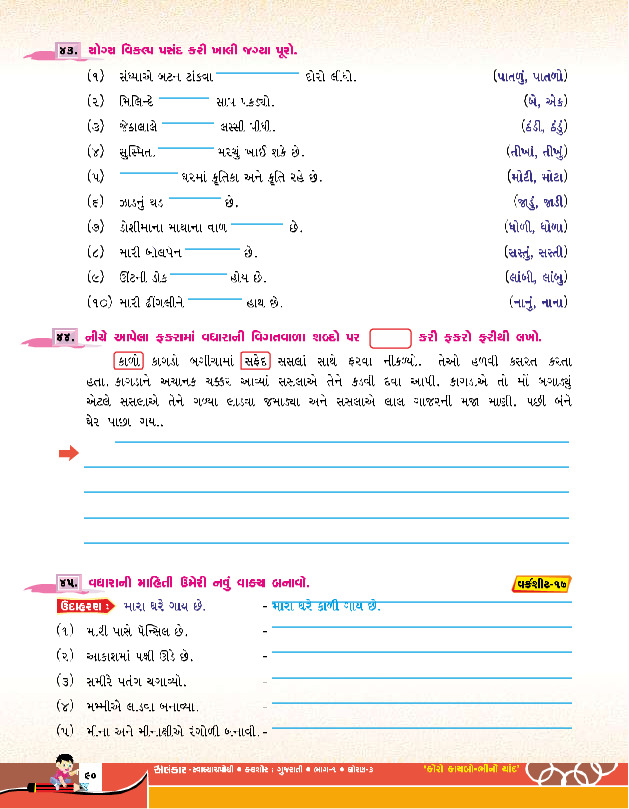 ૪૩. યોગ્ય વિકલ્પ પસંદ કરી ખાલી જગ્યા પૂરો.
(૧) સંધ્યાએ બટન ટાંકવા દોરો લીધો. (પાતળું, પાતળો)
(૨) મિલિન્દે સાપ પકડ્યો. (બે, એક)
(૩) જેઠાલાલે લસ્સી પીધી. (ઠંડી, ઠંડું)
(૪) સુસ્મિતા મરચું ખાઈ શકે છે. (તીખાં, તીખું)
(૫) ઘરમાં કૃતિકા અને કૃતિ રહે છે. (મોટી, મોટા)
(૬) ઝાડનું થડ છે. (જાડું, જાડી)
(૭) ડોશીમાના માથાના વાળ છે. (ધોળી, ધોળા)
(૮) મારી બોલપેન છે. (સસ્તું, સસ્તી)
(૯) ઊંટની ડોક હોય છે. (લાંબી, લાંબુ)
(૧૦) મારી ઢીંગલીને હાથ છે. (નાનું, નાના)
૪૪. નીચે આપેલા ફકરામાં વધારાની વિગતવાળા શબ્દો પર કરી ફકરો ફરીથી લખો.
કાળો કાગડો બગીચામાં સફેદ સસલાં સાથે ફરવા નીકળ્યો. તેઓ હળવી કસરત કરતા
હતા. કાગડાને અચાનક ચક્કર આવ્યાં સસલાએ તેને કડવી દવા આપી. કાગડાએ તો મોં બગાડ્યું
એટલે સસલાએ તેને ગળ્યા લાડવા જમાડ્યા અને સસલાએ લાલ ગાજરની મજા માણી. પછી બંને
ઘેર પાછા ગયા.
૪૫. વધારાની માહિતી ઉમેરી નવું વાક્ય બનાવો. વર્કશીટ-૧૭
ઉદાહરણ : મારા ઘરે ગાય છે. - મારા ઘરે કાળી ગાય છે.
(૧) મારી પાસે પેન્સિલ છે. -
(૨) આકાશમાં પક્ષી ઊડે છે. -
(૩) સમીરે પતંગ ચગાવ્યો. -
(૪) મમ્મીએ લાડવા બનાવ્યા. -
(૫) મીના અને મીનાક્ષીએ રંગોળી બનાવી. -
૯૦ અલંકાર - સ્વાધ્યાયપોથી • કલશોર : ગુજરાતી • ભાગ-૧ • ધોરણ-૩ 'કોરો કાચલો-ભીનો ચાંદ'